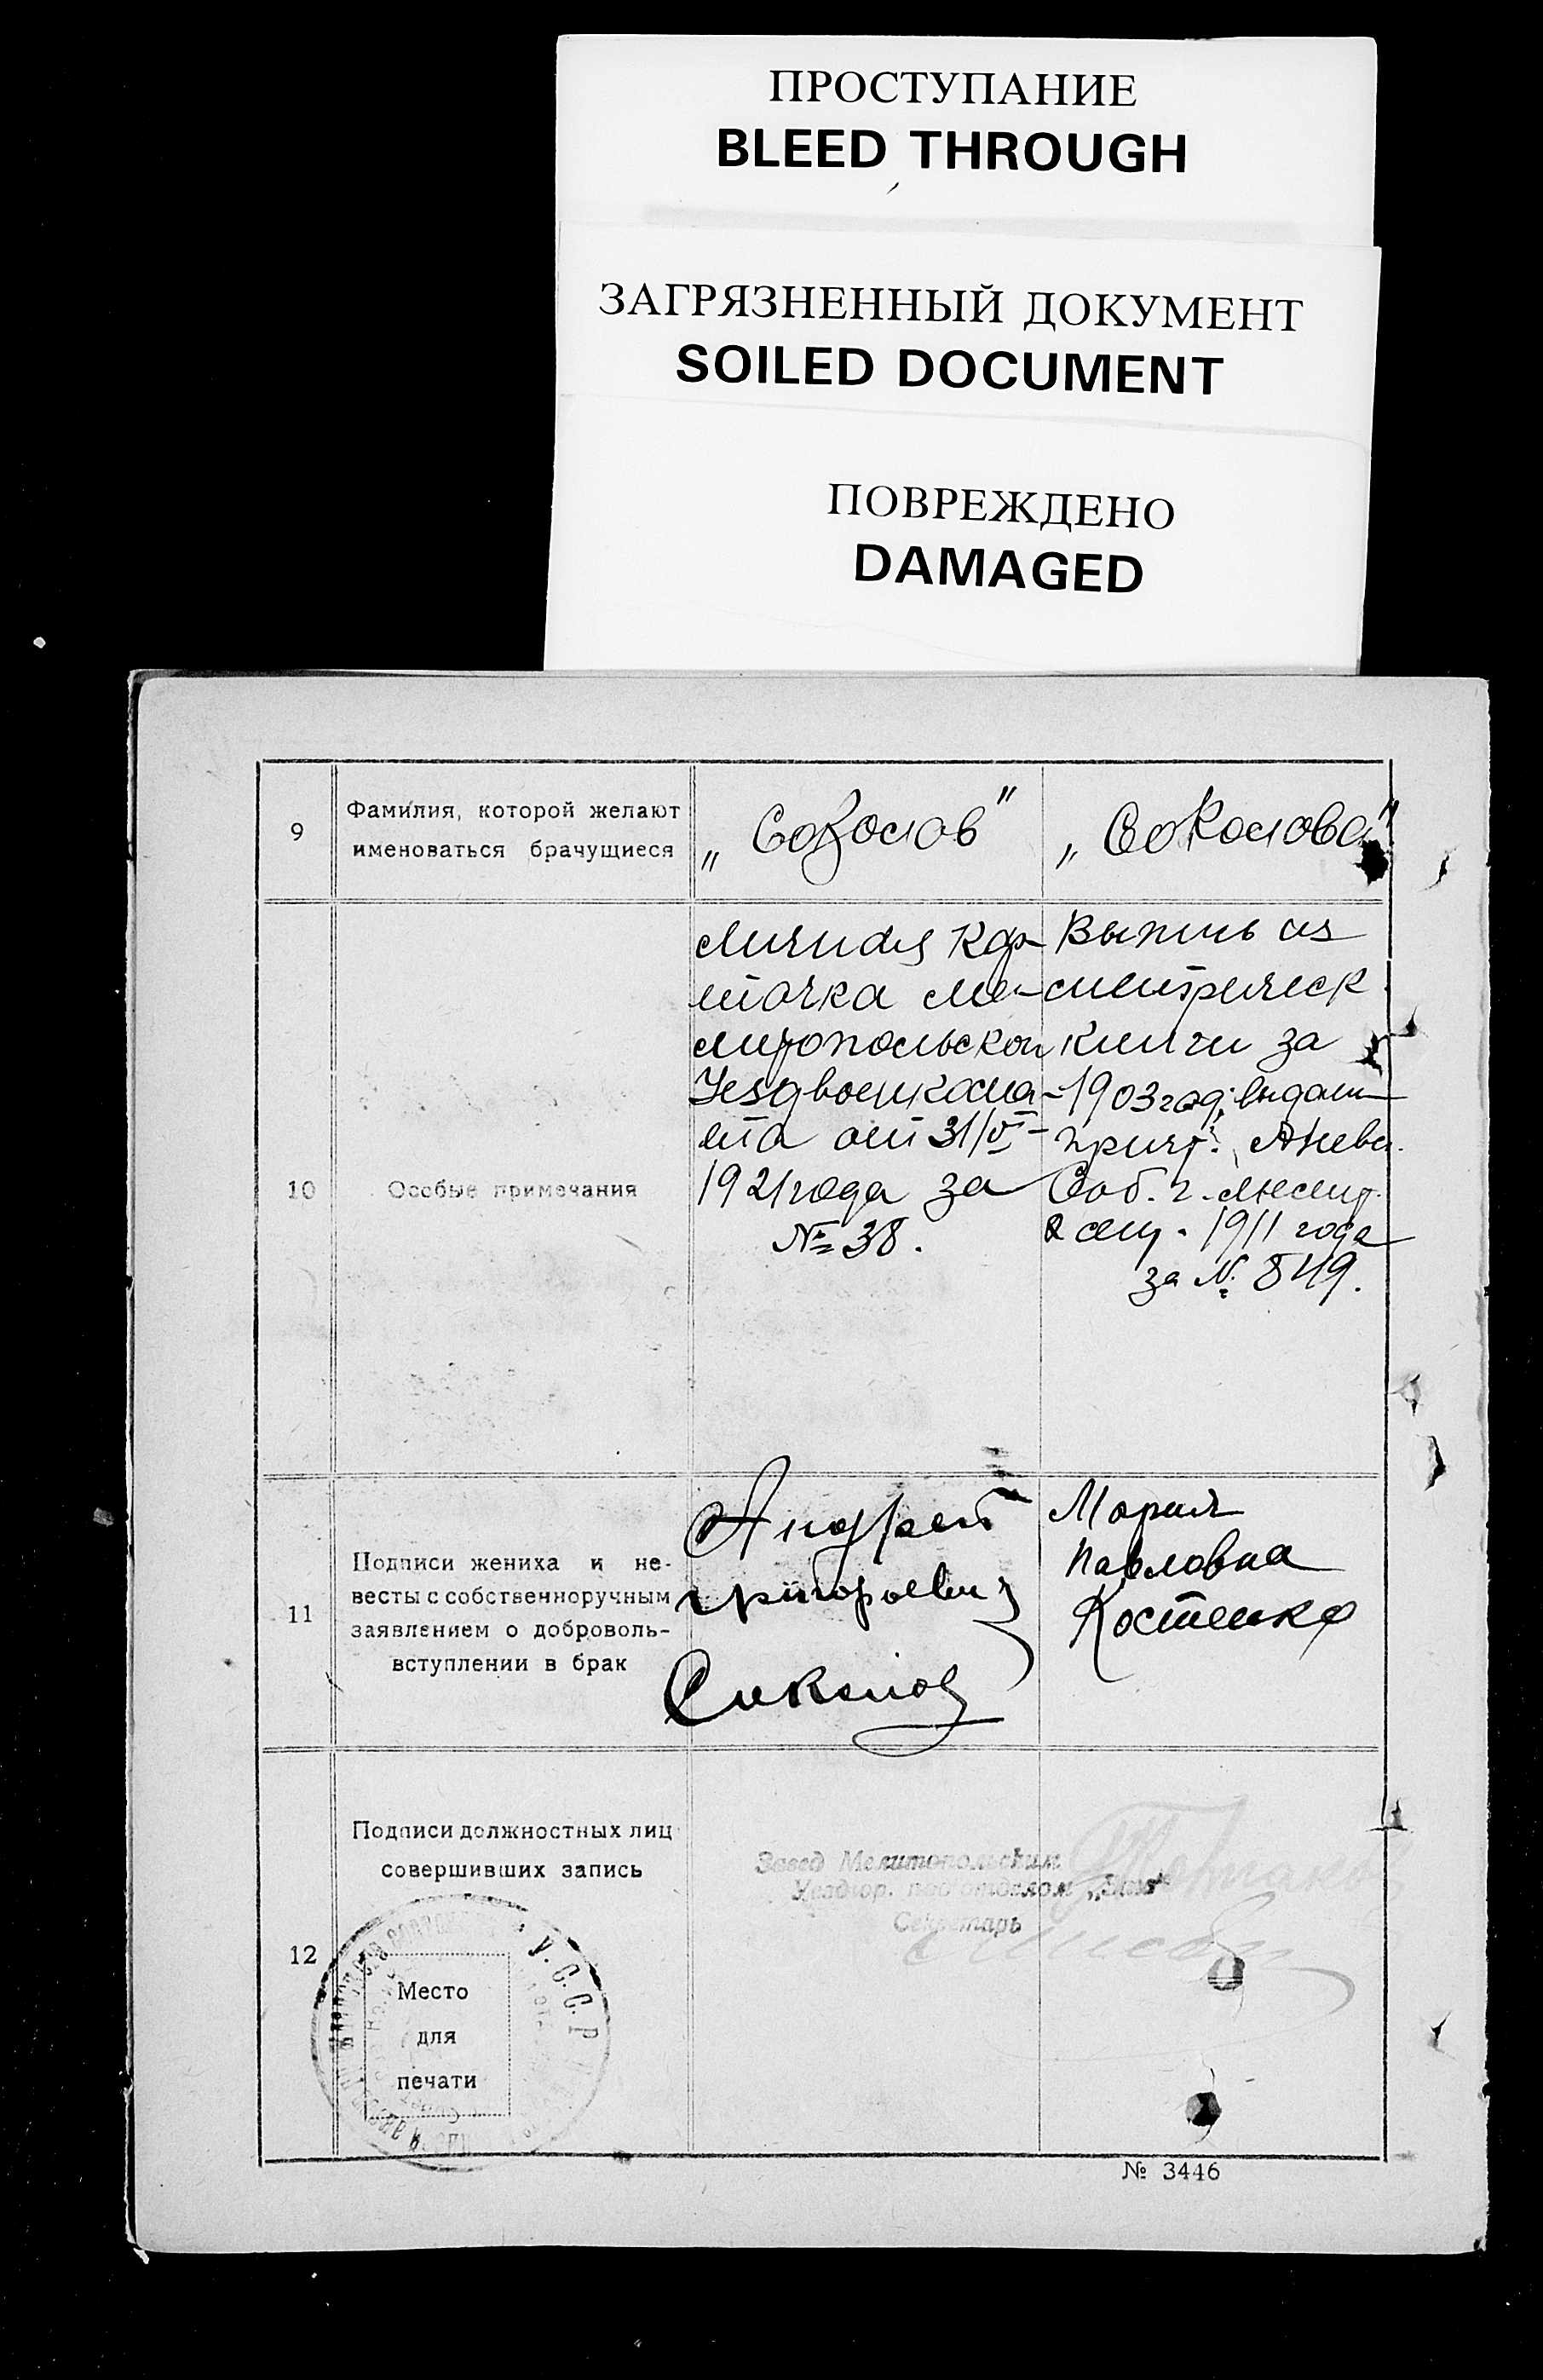 ПРОСТУПАНИЕ
BLEED THROUGH
ЗАГРЯЗНЕННЫЙ ДОКУМЕНТ
SOILED DOCUMENT
ПОВРЕЖДЕНО
DAMAGED
9
Фамилия, которой желают
именоваться брачущиеся
„Соколов"
„Соколова"
10
Особые примечания
Личная кар-
точка Ме-
литопольской
Уездвоенкома-
та от 31/V-
1921 года за
№ 38.
Выпись из
метрическ
книги за
1903 год, выдан
причт. А Невс.
Соб. г. Мелит.
2 сент. 1911 года
за № 849.
11
Подписи жениха и не-
весты с собственноручным
заявлением о доброволь-
вступлении в брак
Андрей
Григорьевич
Соколов
Мария
Павловна
Костенко
12
Подписи должностных лиц
совершивших запись
Завед Мелитопольским
Уездгор. подотделом „Загс"
Секретарь
У.С.С.Р
Место
для
печати
№ 3446